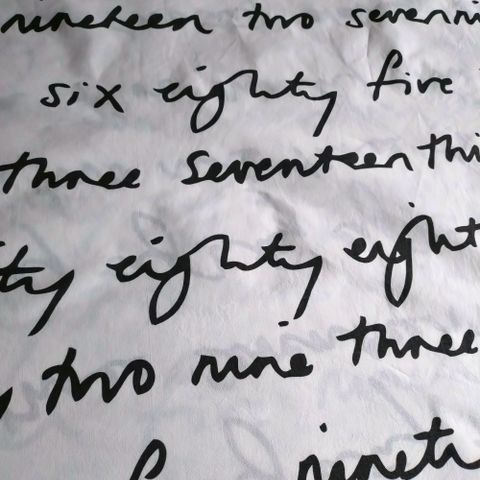 nineteen two seven
six eighty five
three seventeen thi
ty eighty eight
y two nine three
ninet